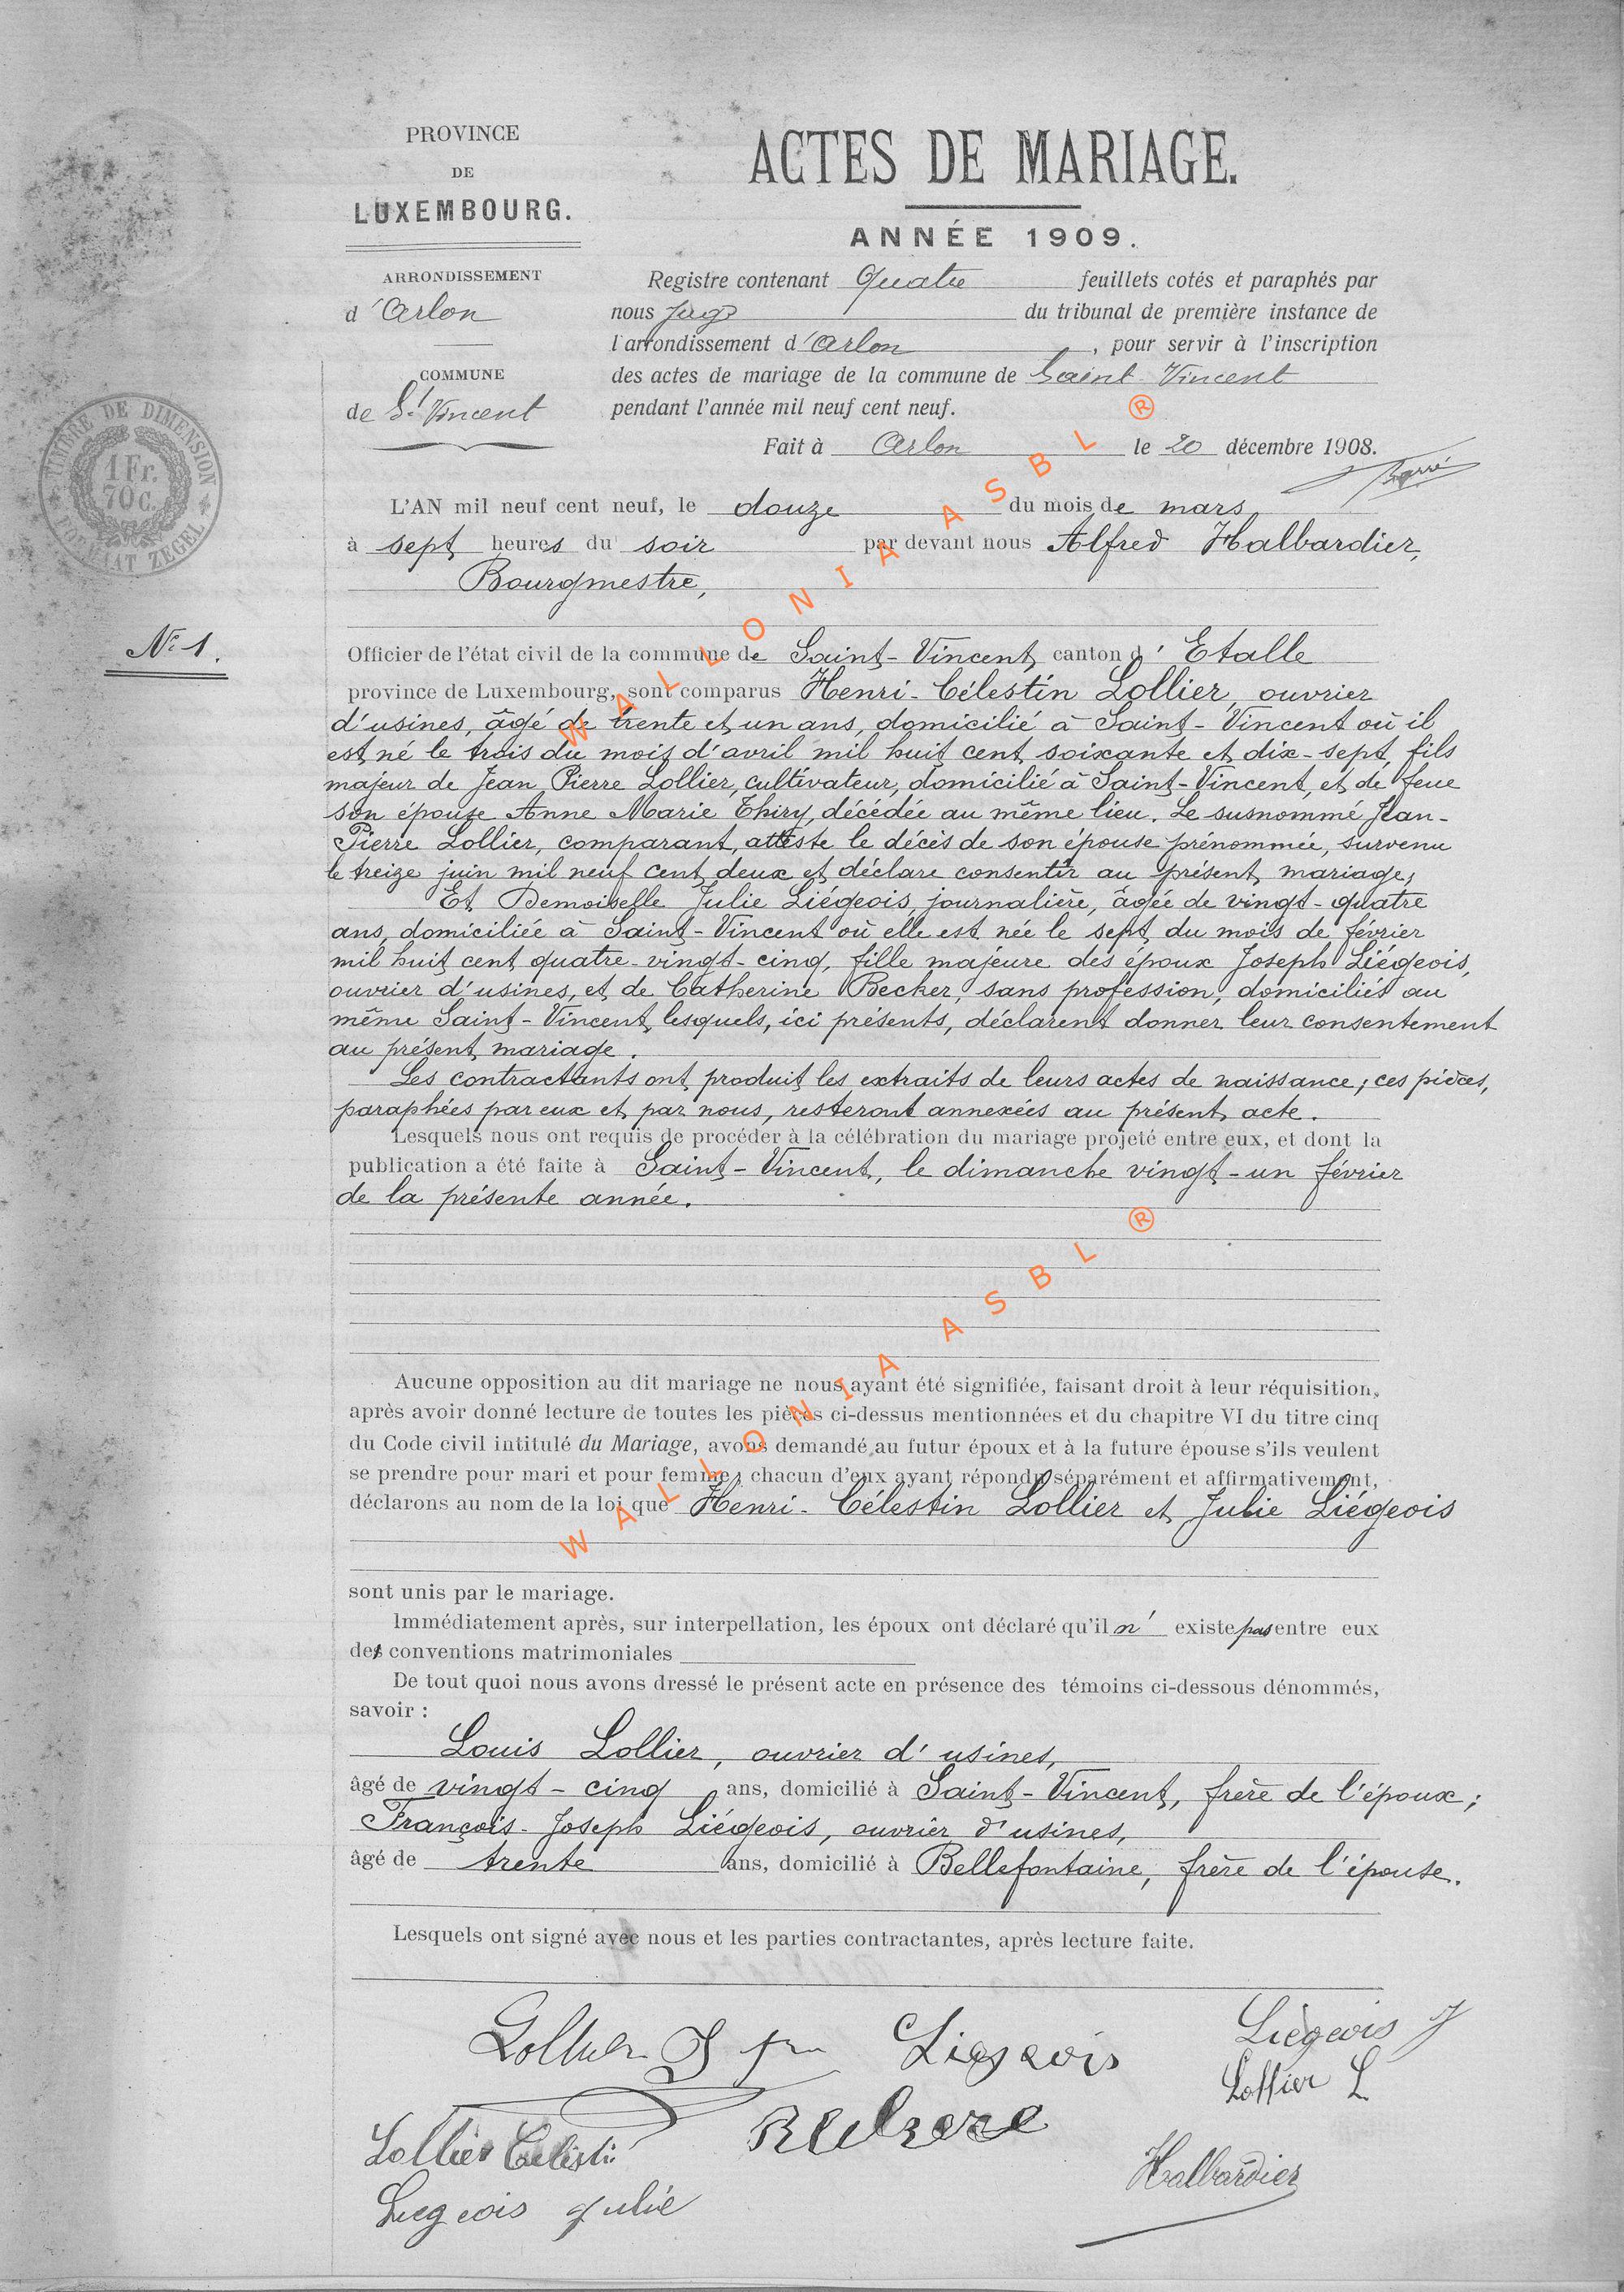 PROVINCE
DE
LUXEMBOURG.
ARRONDISSEMENT
d'Arlon
COMMUNE
de St Vincent
ACTES DE MARIAGE.
ANNÉE 1909.
Registre contenant Quatre feuillets cotés et paraphés par
nous Juge du tribunal de première instance de
l'arrondissement d'Arlon, pour servir à l'inscription
des actes de mariage de la commune de Saint Vincent
pendant l'année mil neuf cent neuf.
Fait à Arlon le 20 décembre 1908.
TIMBRE DE DIMENSION
1 Fr.
70 C.
FORMAAT ZEGEL
L'AN mil neuf cent neuf, le douze du mois de mars
à sept heures du soir par devant nous Alfred Halbardier,
Bourgmestre,
No 1.
Officier de l'état civil de la commune de Saint-Vincent, canton d'Etalle
province de Luxembourg, sont comparus Henri-Célestin Lollier, ouvrier
d'usines, âgé de trente et un ans, domicilié à Saint-Vincent où il
est né le trois du mois d'avril mil huit cent soixante et dix-sept, fils
majeur de Jean Pierre Lollier, cultivateur, domicilié à Saint-Vincent, et de feue
son épouse Anne Marie Thiry, décédée au même lieu. Le susnommé Jean-
Pierre Lollier, comparant, atteste le décès de son épouse prénommée, survenu
le treize juin mil neuf cent deux et déclare consentir au présent mariage;
Et Demoiselle Julie Liégeois, journalière, âgée de vingt-quatre
ans, domiciliée à Saint-Vincent où elle est née le sept du mois de février
mil huit cent quatre-vingt-cinq, fille majeure des époux Joseph Liégeois,
ouvrier d'usines, et de Catherine Becker, sans profession, domiciliés au
même Saint-Vincent, lesquels, ici présents, déclarent donner leur consentement
au présent mariage.
Les contractants ont produit les extraits de leurs actes de naissance; ces pièces,
paraphées par eux et par nous, resteront annexées au présent acte.
Lesquels nous ont requis de procéder à la célébration du mariage projeté entre eux, et dont la
publication a été faite à Saint-Vincent, le dimanche vingt-un février
de la présente année.
Aucune opposition au dit mariage ne nous ayant été signifiée, faisant droit à leur réquisition,
après avoir donné lecture de toutes les pièces ci-dessus mentionnées et du chapitre VI du titre cinq
du Code civil intitulé du Mariage, avons demandé au futur époux et à la future épouse s'ils veulent
se prendre pour mari et pour femme; chacun d'eux ayant répondu séparément et affirmativement,
déclarons au nom de la loi que Henri-Célestin Lollier et Julie Liégeois
sont unis par le mariage.
Immédiatement après, sur interpellation, les époux ont déclaré qu'il n'existe pas entre eux
des conventions matrimoniales
De tout quoi nous avons dressé le présent acte en présence des témoins ci-dessous dénommés,
savoir :
Louis Lollier, ouvrier d'usines,
âgé de vingt-cinq ans, domicilié à Saint-Vincent, frère de l'époux;
François-Joseph Liégeois, ouvrier d'usines,
âgé de trente ans, domicilié à Bellefontaine, frère de l'épouse.
Lesquels ont signé avec nous et les parties contractantes, après lecture faite.
Lollier J Liegeois Liègeois J
Lollier L
Lollier Celesti
Halbardier
Liegeois Julie
WALLONIA ASBL ®
WALLONIA ASBL ®